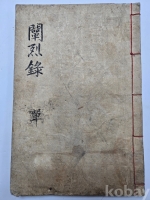 闡烈錄
單
kobay